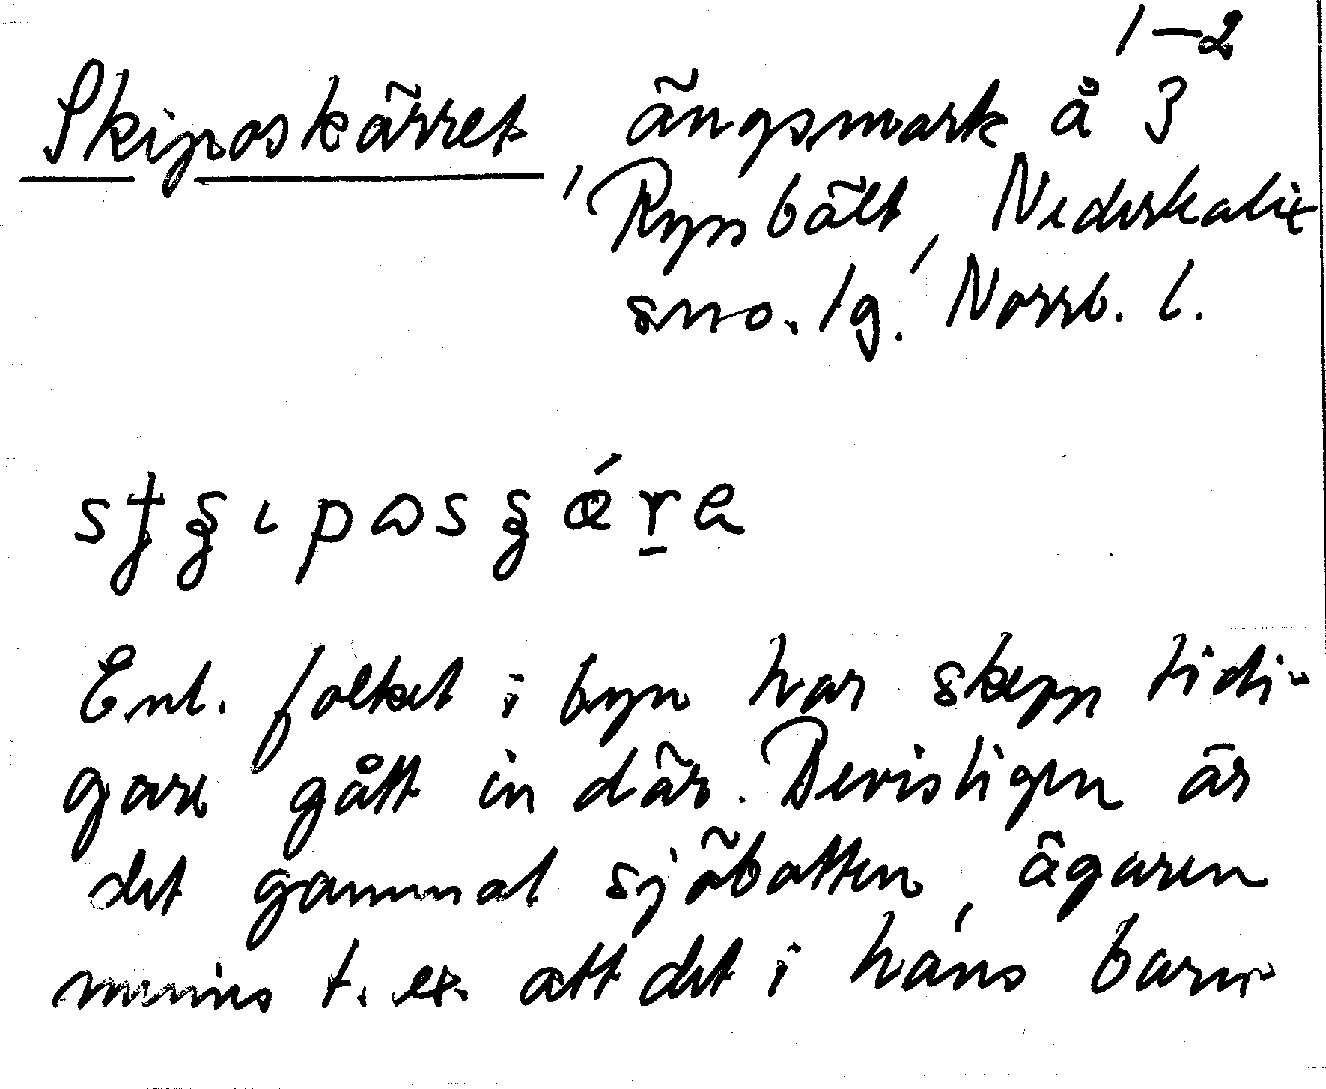 Skiposkärret, ängsmark å 3 1-2
Ryssbält, Nederkalix
sno. lg. Norrb. l.
Enl. folket i byn har skepp tidi-
gare gått in där. Bevisligen är
det gammal sjöbotten, ägaren
minns t. ex. att det i hans barn-